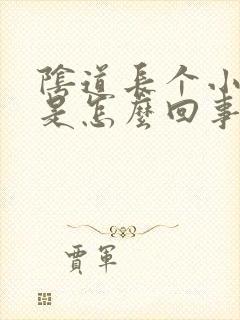 陰道長个小
是怎麼回事
賈軍